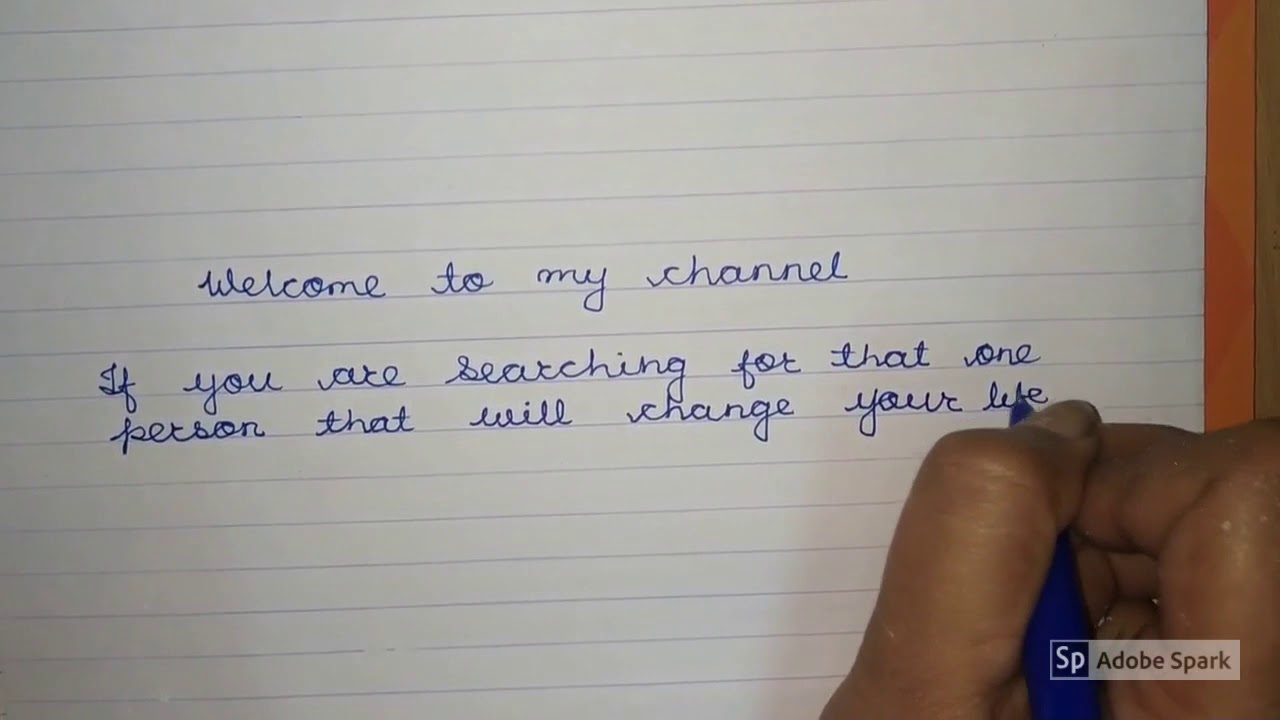 Welcome to my channel
If you are searching for that one
person that will change your life
Sp Adobe Spark